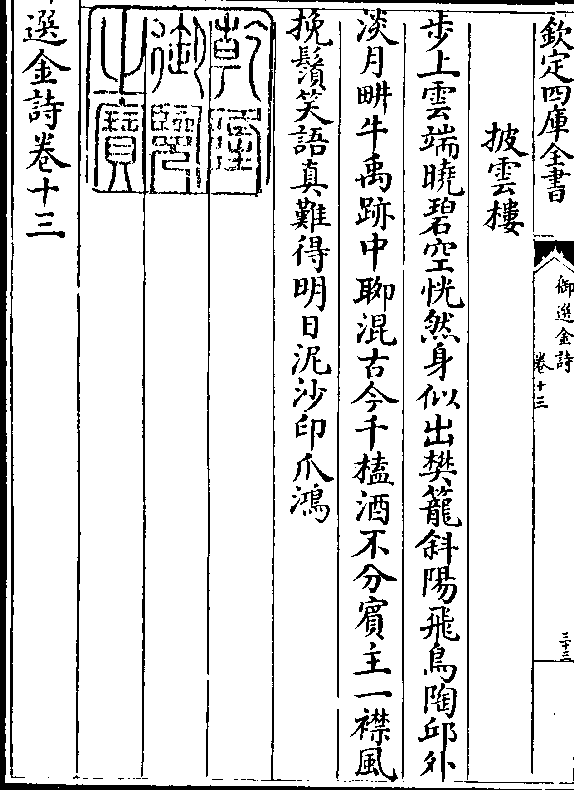 欽定四庫全書
御選金詩
卷十三
三十三
披雲樓
步上雲端曉碧空恍然身似出樊籠斜陽飛鳥陶邱外
淡月畊牛禹跡中聊混古今千榼酒不分賓主一襟風
挽鬚笑語真難得明日泥沙印爪鴻
乾隆
御覽
之寶
選金詩卷十三